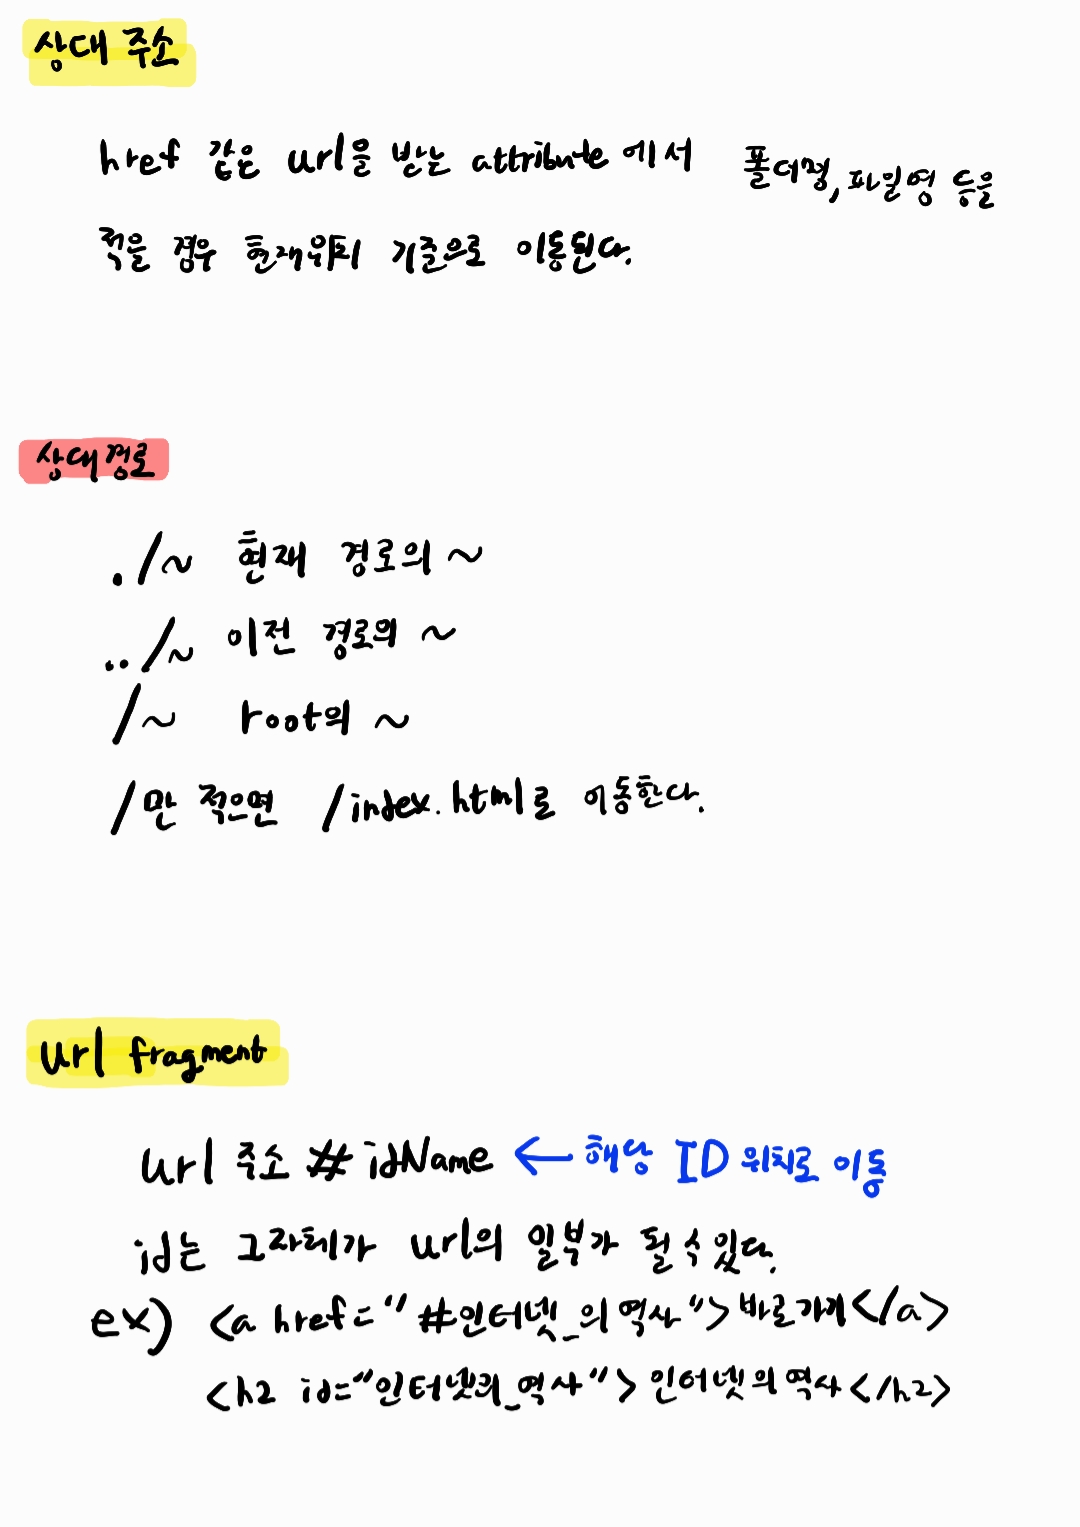 상대 주소
href 같은 url을 받는 attribute 에서 폴더명, 파일명 등을
적을 경우 현재위치 기준으로 이동된다.
상대경로
./~ 현재 경로의 ~
../~ 이전 경로의 ~
/~ root의 ~
/만 적으면 /index.html로 이동한다.
url fragment
url 주소 # idName ← 해당 ID 위치로 이동
id는 그자체가 url의 일부가 될 수 있다.
ex) <a href="#인터넷_의역사">바로가기</a>
<h2 id="인터넷의_역사">인터넷의 역사</h2>